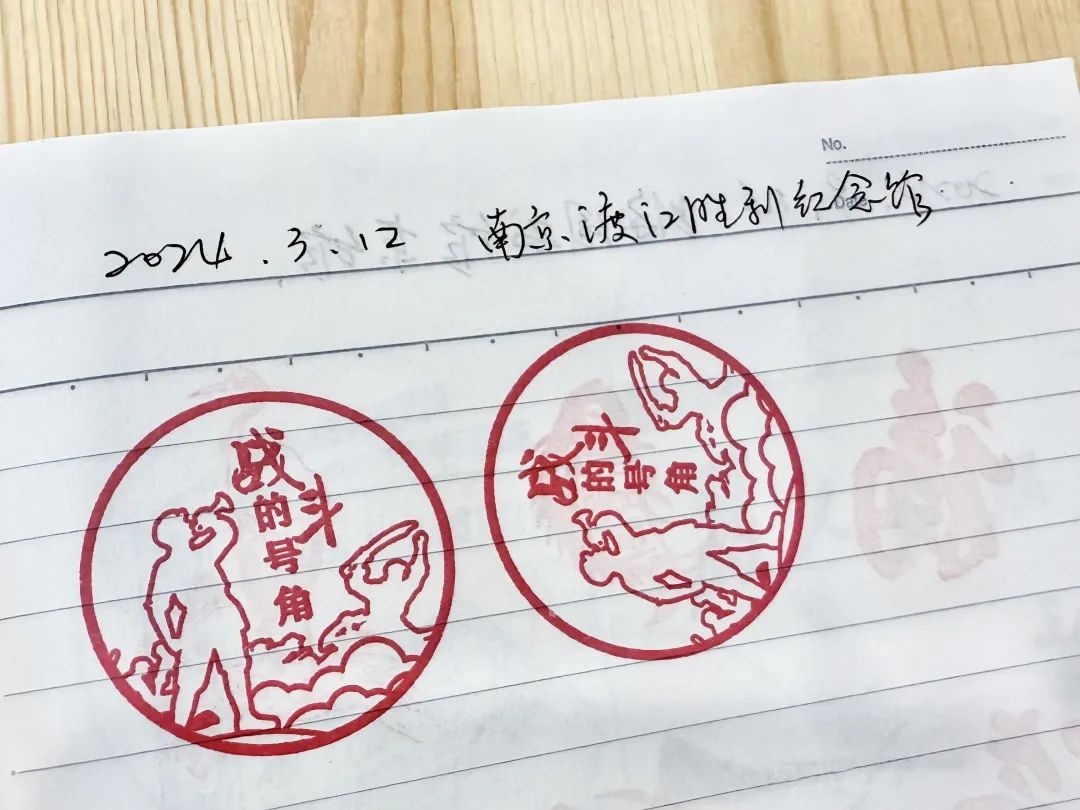 No.
2024.3.12 南京渡江胜利纪念馆
战斗的号角
战斗的号角